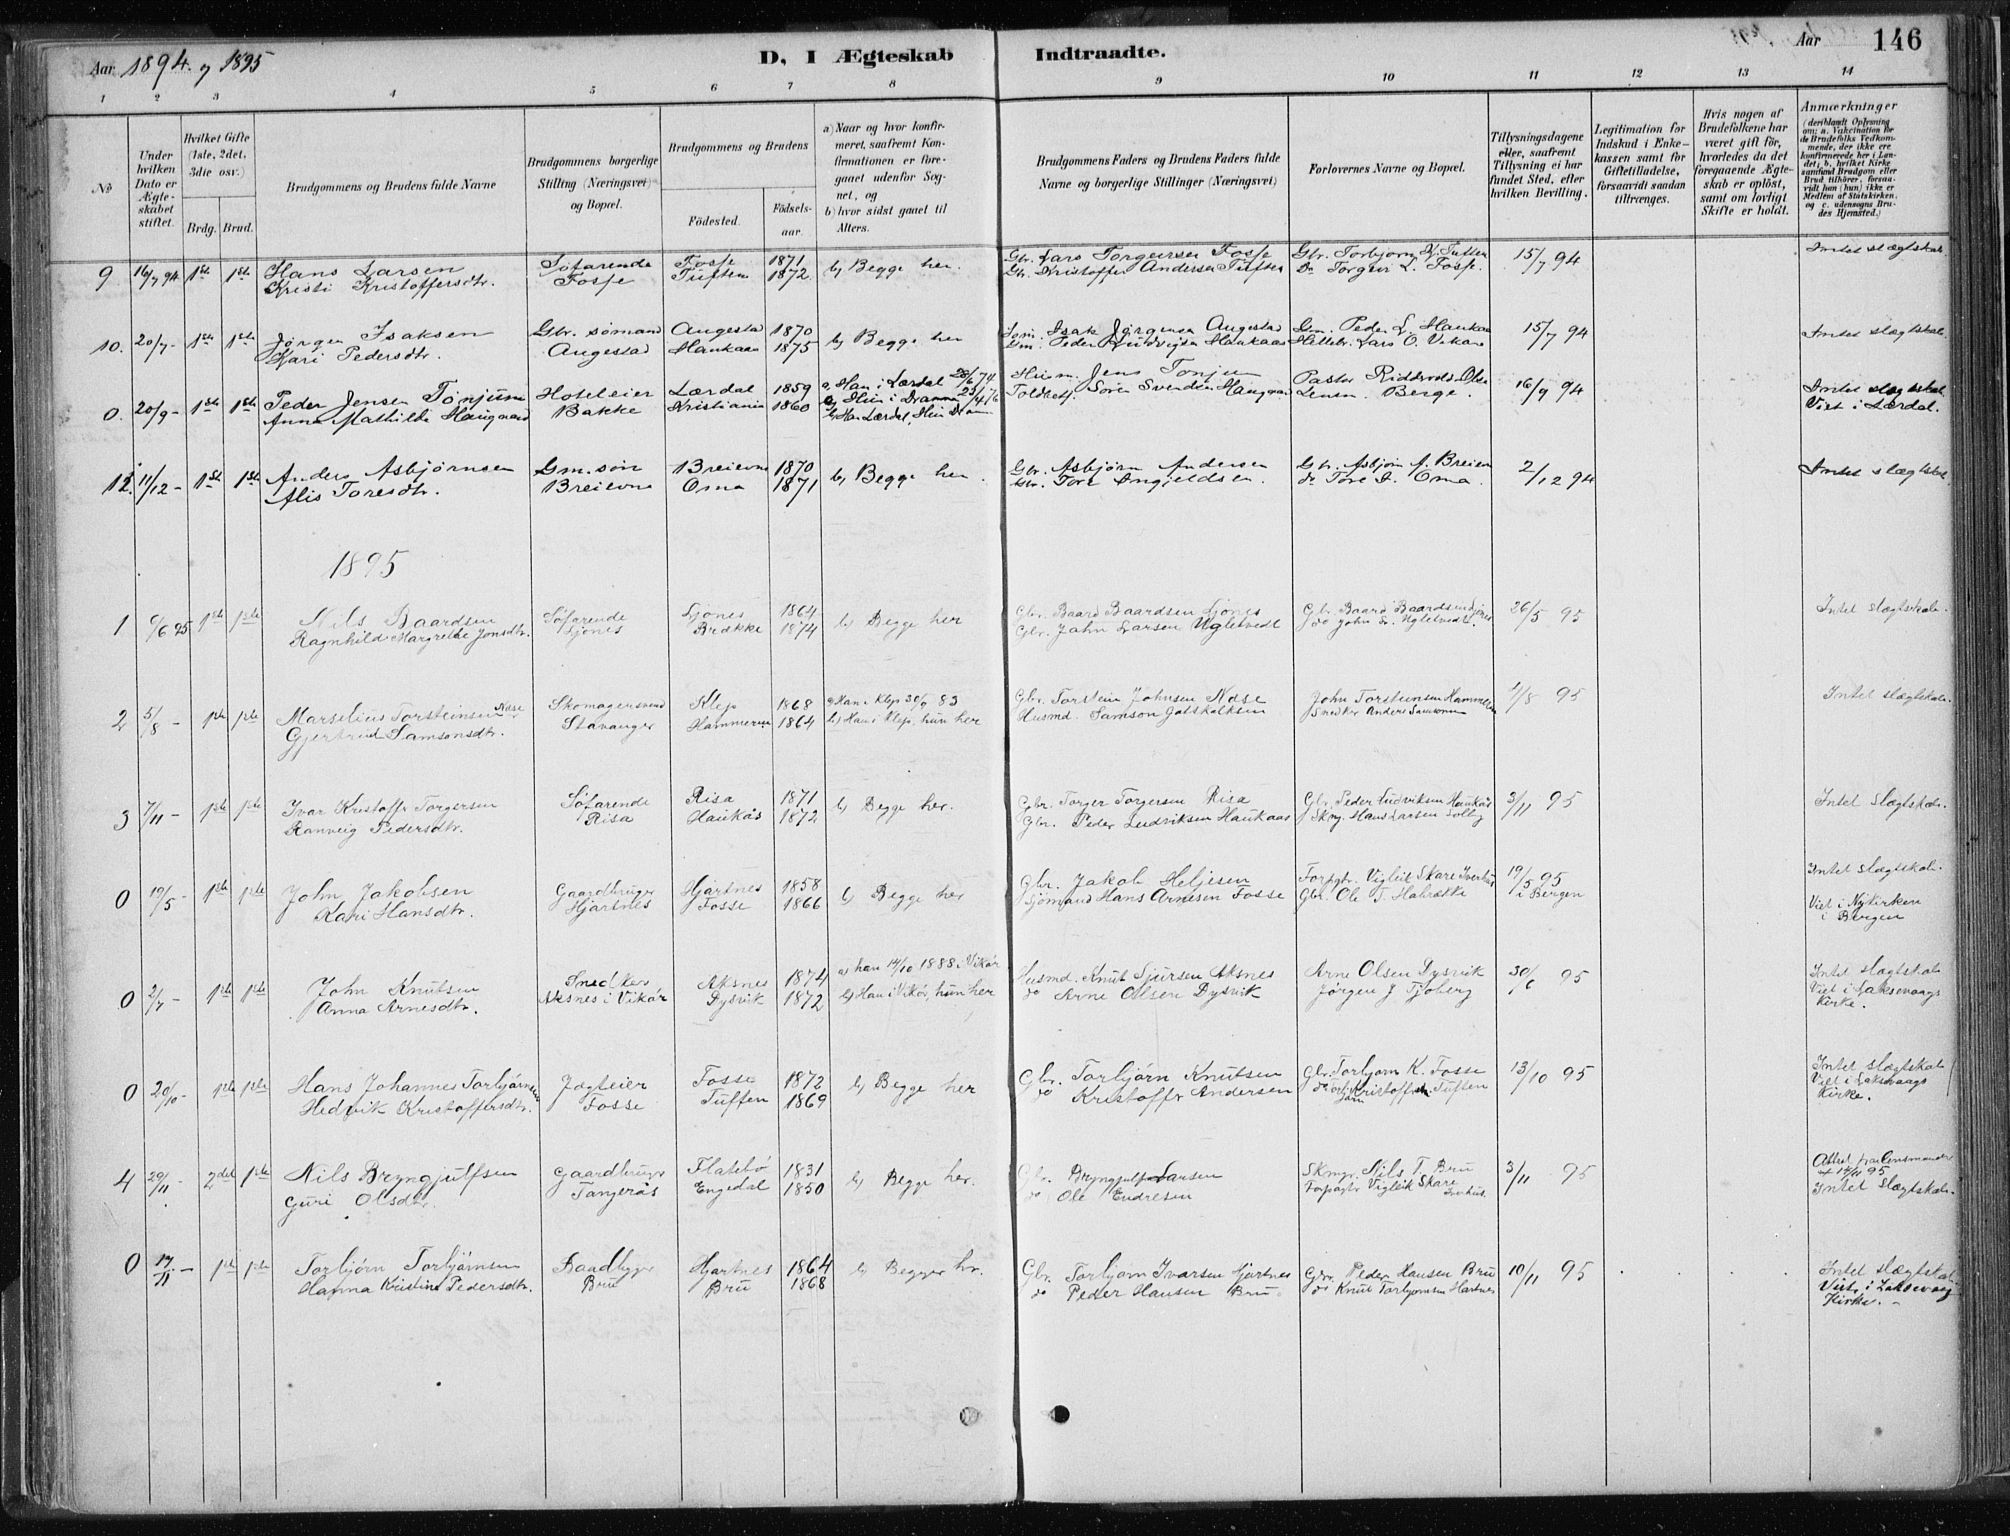 Aar 1894 og 1895
D, I Ægteskab Indtraadte.
Aar 146
1 2 3 4 5 6 7 8 9 10 11 12 13 14
No
Under hvilken Dato er Ægteskabet stiftet.
Hvilket Gifte (1ste, 2det, 3die osv.)
Brdg. Brud.
Brudgommens og Brudens fulde Navne
Brudgommens borgerlige Stilling (Næringsvei) og Bopæl.
Brudgommens og Brudens
Födested. Födselsaar.
a) Naar og hvor konfirmeret, saafremt Konfirmationen er foregaaet udenfor Sognet, og
b) hvor sidst gaaet til Alters.
Brudgommens Faders og Brudens Faders fulde Navne og borgerlige Stillinger (Næringsvei)
Forlovernes Navne og Bopæl.
Tillysningsdagene eller, saafremt Tillysning ei har fundet Sted, efter hvilken Bevilling.
Legitimation for Indskud i Enkekassen samt for Giftetilladelse, forsaavidt saadan tiltrænges.
Hvis nogen af Brudefolkene har været gift för, hvorledes da det foregaaende Ægteskab er oplöst, samt om lovligt Skifte er holdt.
Anmærkninger (deriblandt Oplysning om: a. Vakcination for de Brudefolks Vedkommende, der ikke ere konfirmerede her i Landet; b. hvilket Kirkesamfund Brudgom eller Brud tilhörer, forsaavidt han (hun) ikke er Medlem af Statskirken, og c. udensogns Brudes Hjemsted.)
9 16/7 94 1ste 1ste Hans Larsen Søfarende Fosse 1871 b, Begge her. Gbr. Lars Torgersen Fosse Gbr. Torbjørn Tuften 15/7 94 Intet slægtskab
Kristi Kristoffersdtr. Fosse Tuften 1872 Gbr. Kristoffer Andersen Tuften Do Torgeir L. Fosse.
10. 20/7 - 1ste 1ste Jørgen Isaksen Gbr. sømand Augestad 1870 b, Begge her Isak Jørgensen Augestad Gm. Peder L. Haukaas 15/7 94 Intet slægtskab
Kari Pedersdtr. Augestad Haukaas 1875 Gm. Peder Ludvigsen Haukaas Lars O. Vikane
0. 20/9 - 1ste 1ste Peder Jensen Tønjum Hoteleier Lærdal 1859 a, Han i Lærdal 28/6 74 Jens Tonjum Pastor Riddervold Olsen 16/9 94 Intet slægtskab
Anna Mathilde Haugaard Bakke Kristiania 1860 a, Hun i Drammen Sørn Svendsen Haugaard Lensm. Berge. Viet i Lærdal.
b, Han Lærdal, Hun Drammen
12. 11/12 - 1ste 1ste Anders Asbjørnsen Gm. søn Breievne 1870 b, Begge her. Gbr. Asbjørn Andersen Gbr. Asbjørn A. Breien 2/12 94 Intet slægtskab
Alis Toresdtr. Breievne Oma 1871 Gbr. Tore Engjeldsen. do Tore Oma
1895
1 6/6 95 1ste 1ste Nils Baardsen Søfarende Ljones 1864 b) Begge her Gbr. Baard Baardsen Ljones Gbr. Baard Baardsen Ljones 26/5 95 Intet slægtskab.
Ragnhild Margrethe Jonsdtr. Ljones Brække 1874 Gbr. John Larsen Ugletvedt do John L. Ugletvedt
2 5/8 - 1ste 1ste Marselius Torsteinsen Næse Skomagersvend Klep 1868 a) Han i Klep 30/9 83 Gbr. Torstein Johnsen Næse John Torsteinsen Hammeren 1/8 95 Intet slægtskab.
Gjertrud Samsonsdtr. Stavanger Hammeren 1864 b) Han i Klep, hun her Husmd. Samson Gotskalksen Snedker Anders Samsonsen
3 7/11 - 1ste 1ste Ivar Kristoffer Torgersen Søfarende Risa 1871 b) Begge her. Gbr. Torger Torgersen Risa Gbr. Peder Ludviksen Haukås 3/11 95 Intet slægtskab.
Ranveig Pedersdtr. Risa Haukås 1872 Gbr. Peder Ludviksen Haukaas Skmg. Hans Larsen Solbg
0 19/5 - 1ste 1ste John Jakobsen Gaardbruger Hjartnes 1858 b) Begge her Gbr. Jakob Heljesen Forpgtr. Vigleik Skare Iverhus 19/5 95 Intet slægtskab.
Kari Hansdtr. Hjartnes Fosse 1866 Sjømand Hans Arnesen Fosse Gbr. Ole T. Halrække i Bergen Viet i Nykirken
i Bergen
0 2/7 - 1ste 1ste John Knutsen Snedker Aksnes 1874 a) han 14/10 1888 i Vikør Husmd. Knut Sjursen Aksnes Arne Olsen Dysvik 30/6 95 Intet slægtskab
Anna Arnesdtr. Aksnes i Vikør Dysvik 1872 b) Han i Vikør, hun her do Arne Olsen Dysvik Jørgen J Tjoberg Viet i Laksevaags
Kirke.
0 20/10 - 1ste 1ste Hans Johannes Torbjørnsen Jægteier Fosse 1872 b) Begge her Gbr. Torbjørn Knutsen Gbr. Torbjørn K. Fosse 13/10 95 Intet slægtskab
Hedvik Kristoffersdtr. Fosse Tuften 1869 do Kristoffer Andersen Tuften Viet i Laksevaags
Kirke.
4 20/11 - 2det 1ste Nils Bryngjulfsen Gaardbruger Flatebø 1831 b) Begge her. Gbr. Bryngjulf Larsen Skmgr. Nils T. Bru 3/11 95 Attest fra Lensmanden
af 14/11 95
Guri Olsdtr. Tangerås Engedal 1850 do Ole Endresen Forpagtr Vigleik Skare Iverhus. Intet slægtskab.
0 17/11 - 1ste 1ste Torbjørn Torbjørnsen Baadbygger Hjartnes 1864 b) Begger her. Gbr. Torbjorn Ivarsen Hjartnes Gbr. Peder Hansen Bru 10/11 95 Intet slægtskab.
Hanna Kristina Pedersdtr. Bru Bru 1868 do Peder Hansen Bru. do Knut Torbjornsen Hartnes Viet i Laksevaag
Kirke. -